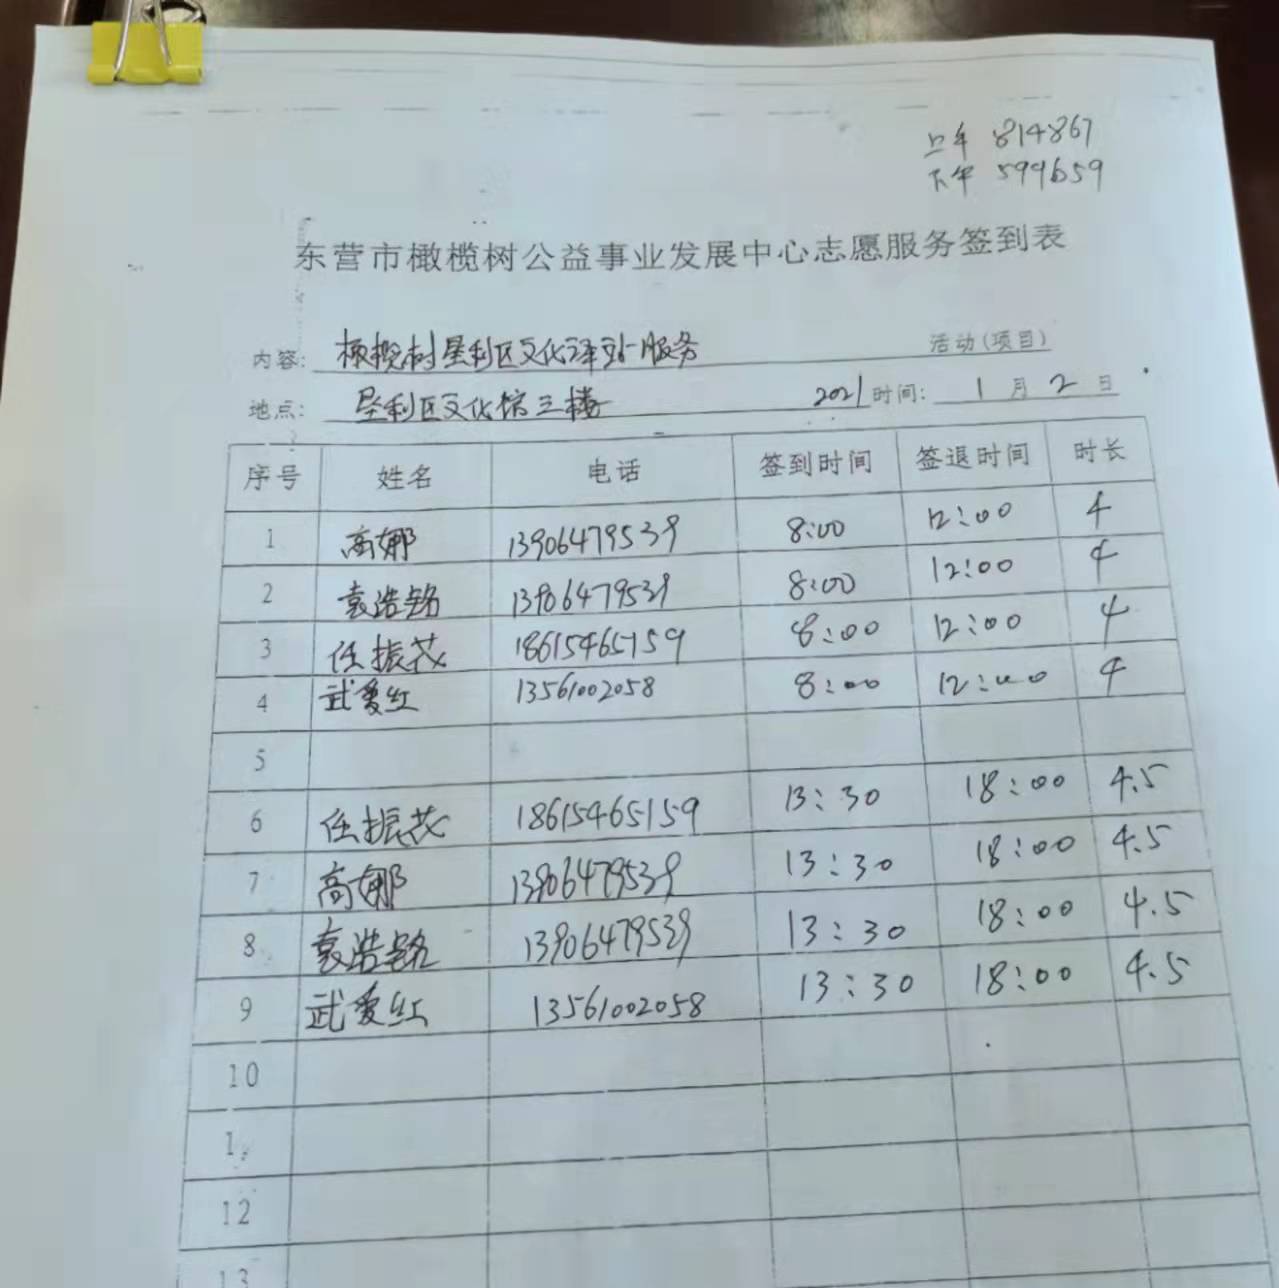 上午 814867
下午 599659
东营市橄榄树公益事业发展中心志愿服务签到表
内容: 橄榄树垦利区文化驿站服务 活动(项目)
地点: 垦利区文化馆三楼 2021 时间: 1 月 2 日
序号 姓名 电话 签到时间 签退时间 时长
1 高娜 13906479539 8:00 12:00 4
2 袁浩铭 13906479539 8:00 12:00 4
3 任振花 18615465159 8:00 12:00 4
4 武爱红 13561002058 8:00 12:00 4
5
6 任振花 18615465159 13:30 18:00 4.5
7 高娜 13906479539 13:30 18:00 4.5
8 袁浩铭 13906479539 13:30 18:00 4.5
9 武爱红 13561002058 13:30 18:00 4.5
10
12
13